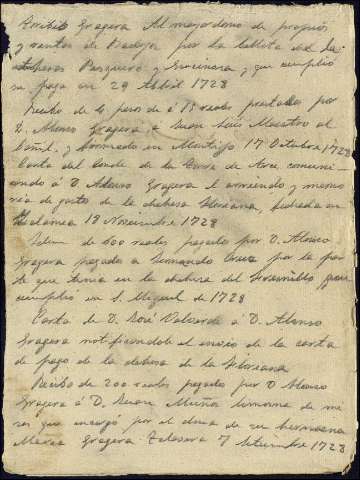 Recibió Gragera Al mayordomo de propios
y rentas de Badajoz por la bellota de la
Pesquero y que cumplió
su paga en 29 Abril 1728
Recibo de 4 pesos de á 15 reales prestados por
D. Alonso Gragera á Juan Luis Maestro al
y firmado en Montijo 17 Octubre 1728
Carta del Conde de la Torre de Arce comuni-
cando á D. Alonso Gragera el arriendo y memo-
ria de gasto de la dehesa fechada en
Zalamea 19 Noviembre 1728
Idem de 600 reales pagado por D. Alonso
Gragera pagado a Fernando por la par-
te que tenia en la dehesa del que
cumplió en S. Miguel de 1728
Carta de D. José Valverde á D. Alonso
Gragera notificandole el envio de la carta
de pago de la dehesa de la
Recibo de 200 reales pagado por D Alonso
Gragera á D. Juan Muñoz limosna de mi-
sas que encargó por el alma de su hermana
Maria Gragera Talavera 7 Setiembre 1728